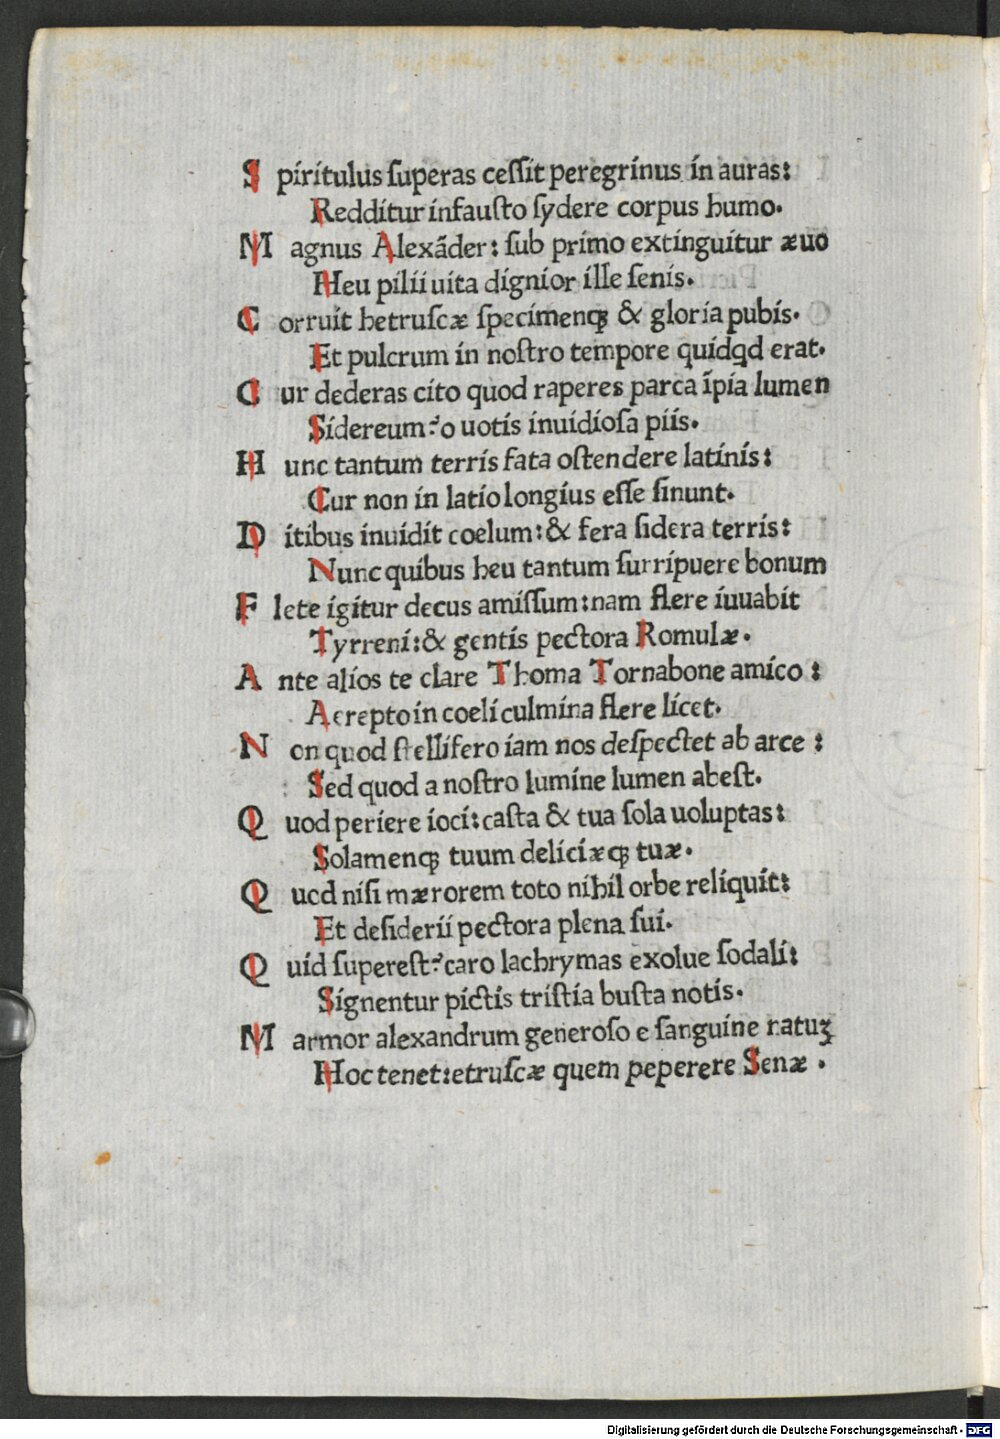 S piritulus ſuperas ceſſit peregrinus in auras:
Redditur infauſto ſydere corpus humo.
M agnus Alexãder: ſub primo extinguitur æuo
Heu pilii uita dignior ille ſenis.
C orruit hetruſcæ ſpecimenqꝫ & gloria pubis.
Et pulcrum in noſtro tempore quidqd erat.
C ur dederas cito quod raperes parca ĩpia lumen
Sidereum? o uotis inuidioſa piis.
H unc tantum terris fata oſtendere latinis:
Cur non in latio longius eſſe ſinunt.
D itibus inuidit coelum: & fera ſidera terris:
Nunc quibus heu tantum ſurripuere bonum
F lete igitur decus amiſſum: nam flere iuuabit
Tyrreni: & gentis pectora Romulæ.
A nte alios te clare Thoma Tornabone amico:
Aerepto in coeli culmina flere licet.
N on quod ſtellifero iam nos deſpectet ab arce:
Sed quod a noſtro lumine lumen abeſt.
Q uod periere ioci: caſta & tua ſola uoluptas:
Solamenqꝫ tuum deliciæqꝫ tuæ.
Q uod niſi mærorem toto nihil orbe reliquit:
Et deſiderii pectora plena ſui.
Q uid ſupereſt? caro lachrymas exolue ſodali:
Signentur pictis triſtia buſta notis.
M armor alexandrum generoſo e ſanguine natuꝫ
Hoc tenet: etruſcæ quem peperere Senæ.
Digitalisierung gefördert durch die Deutsche Forschungsgemeinschaft - DFG